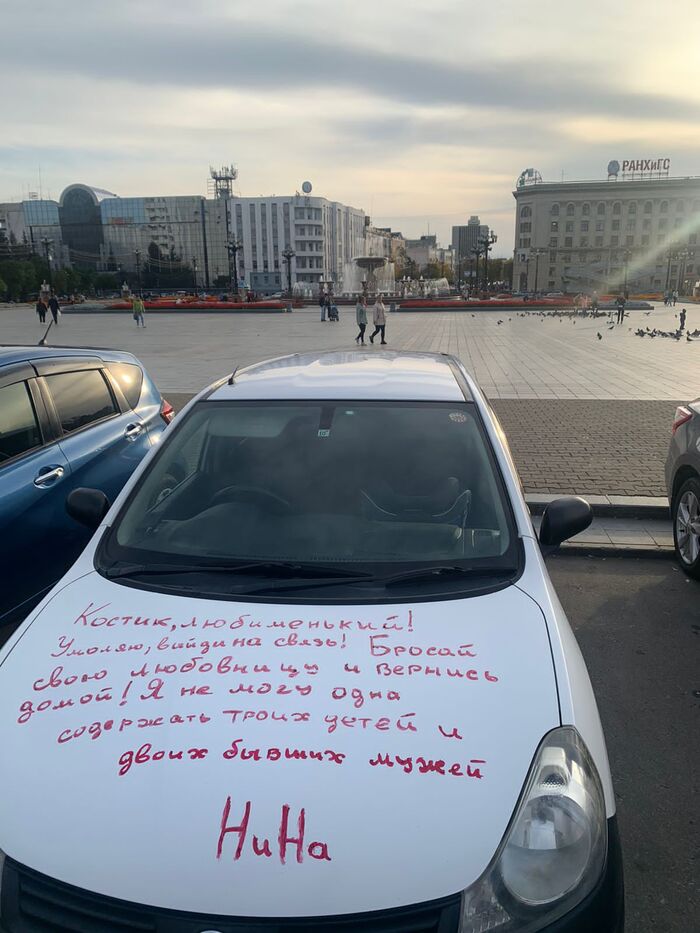 РАНХиГС
Костик, любименький!
Умоляю, выйди на связь! Бросай
свою любовницу и вернись
домой! Я не могу одна
содержать троих детей и
двоих бывших мужей
НиНа